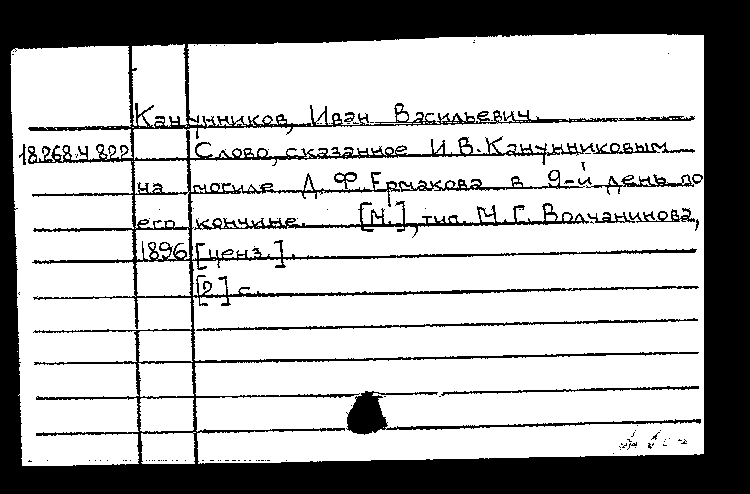 Канунников, Иван Васильевич.
18.268.4.822 Слово, сказанное И.В.Канунниковым
на могиле Д.Ф.Ермакова в 9-й день по
его кончине. [М.], тип. М.Г. Волчанинова,
1896 [ценз.].
[2] с.